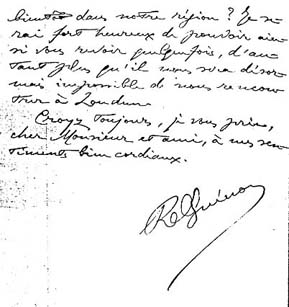 bientôt dans notre région ? Je se-
rai fort heureux de pouvoir ain-
si vous revoir quelquefois, d'au-
tant plus qu'il nous sera désor-
mais impossible de nous rencon-
trer à Loudun.
Croyez toujours, je vous prie,
cher Monsieur et ami, à mes sen-
timents bien cordiaux.
René Guénon